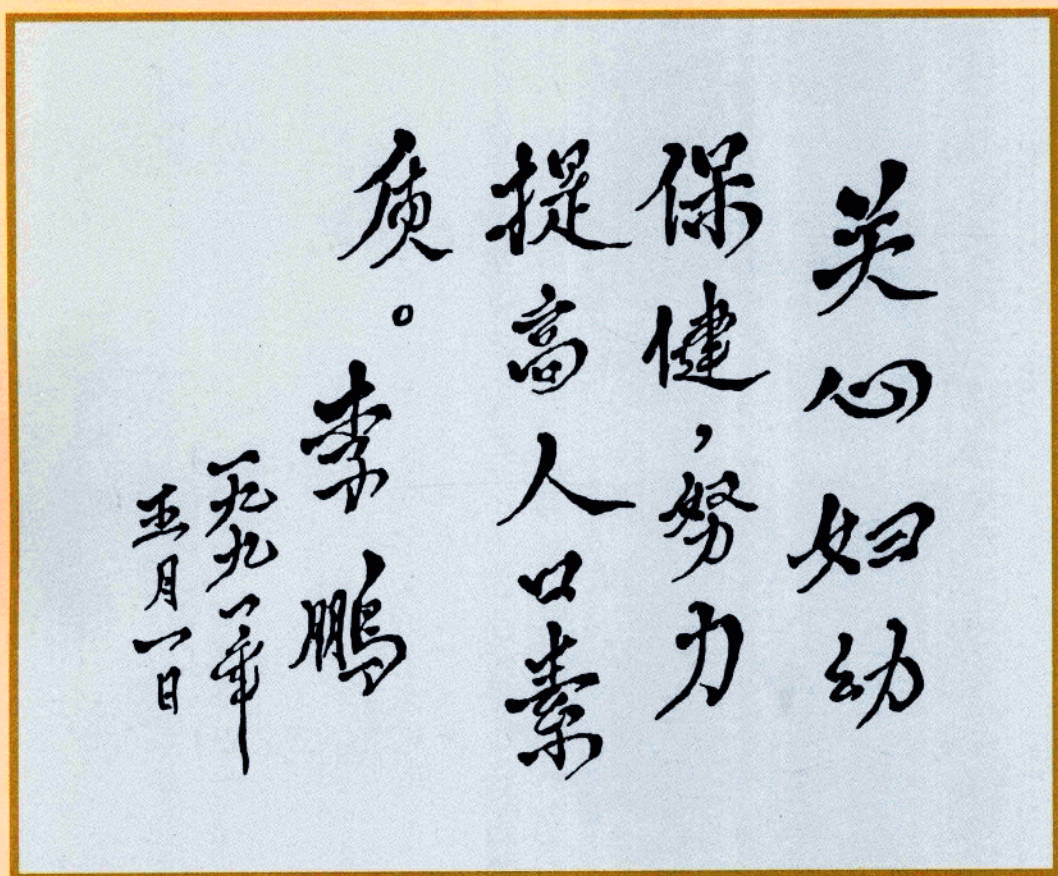 关心妇幼
保健，努力
提高人口素
质。
李鹏
一九九一年
五月一日